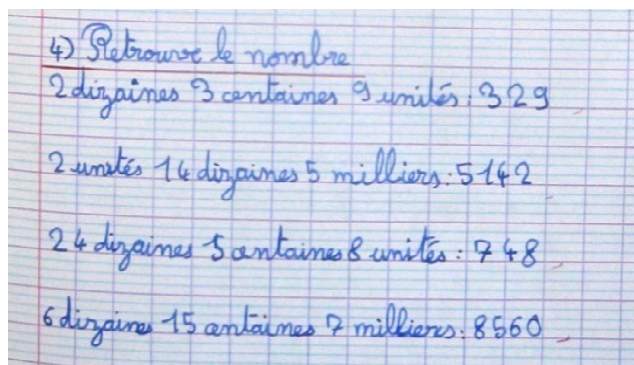 4) Retrouve le nombre
2 dizaines 3 centaines 9 unités : 329
2 unités 14 dizaines 5 milliers : 5142
24 dizaines 5 centaines 8 unités : 748
6 dizaines 15 centaines 7 milliers : 8560